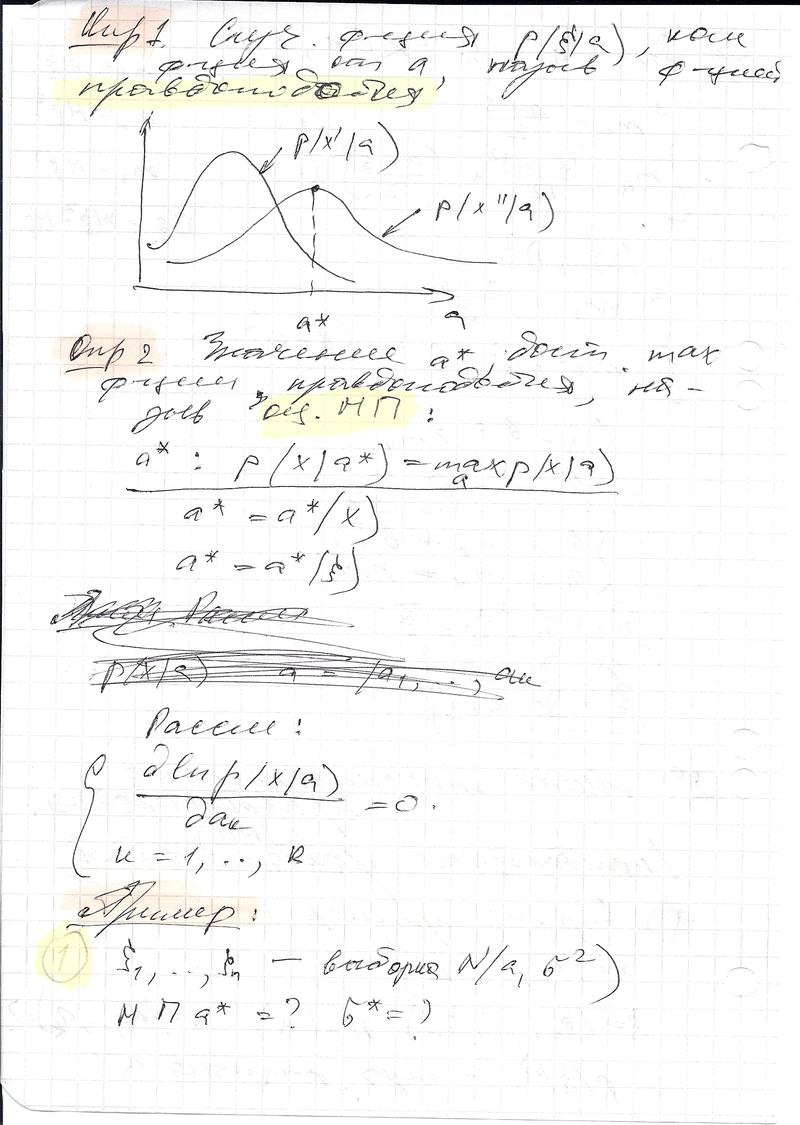 Опр 1. Случ. ф-ция p(ξ|a), как
ф-ция от a, назыв ф-цией
правдоподобия
p(x'|a)
p(x''|a)
a* a
Опр 2 Значение a*, дост. max
ф-ции правдоподобия, на-
зыв оц. МП:
a* : p(x|a*) = max p(x|a)
a
a* = a*(x)
a* = a*(ξ)
p(x|a) a = (a₁, ..,
Рассм:
∂ln p(x|a)
= 0.
∂aₖ
к = 1, ..,
Пример:
1 ξ₁, .., ξₙ — выборка N(a, σ²)
МП a* = ? σ* = ?